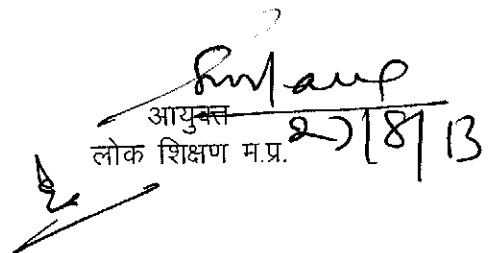 आयुक्त
लोक शिक्षण म.प्र. 27/8/13